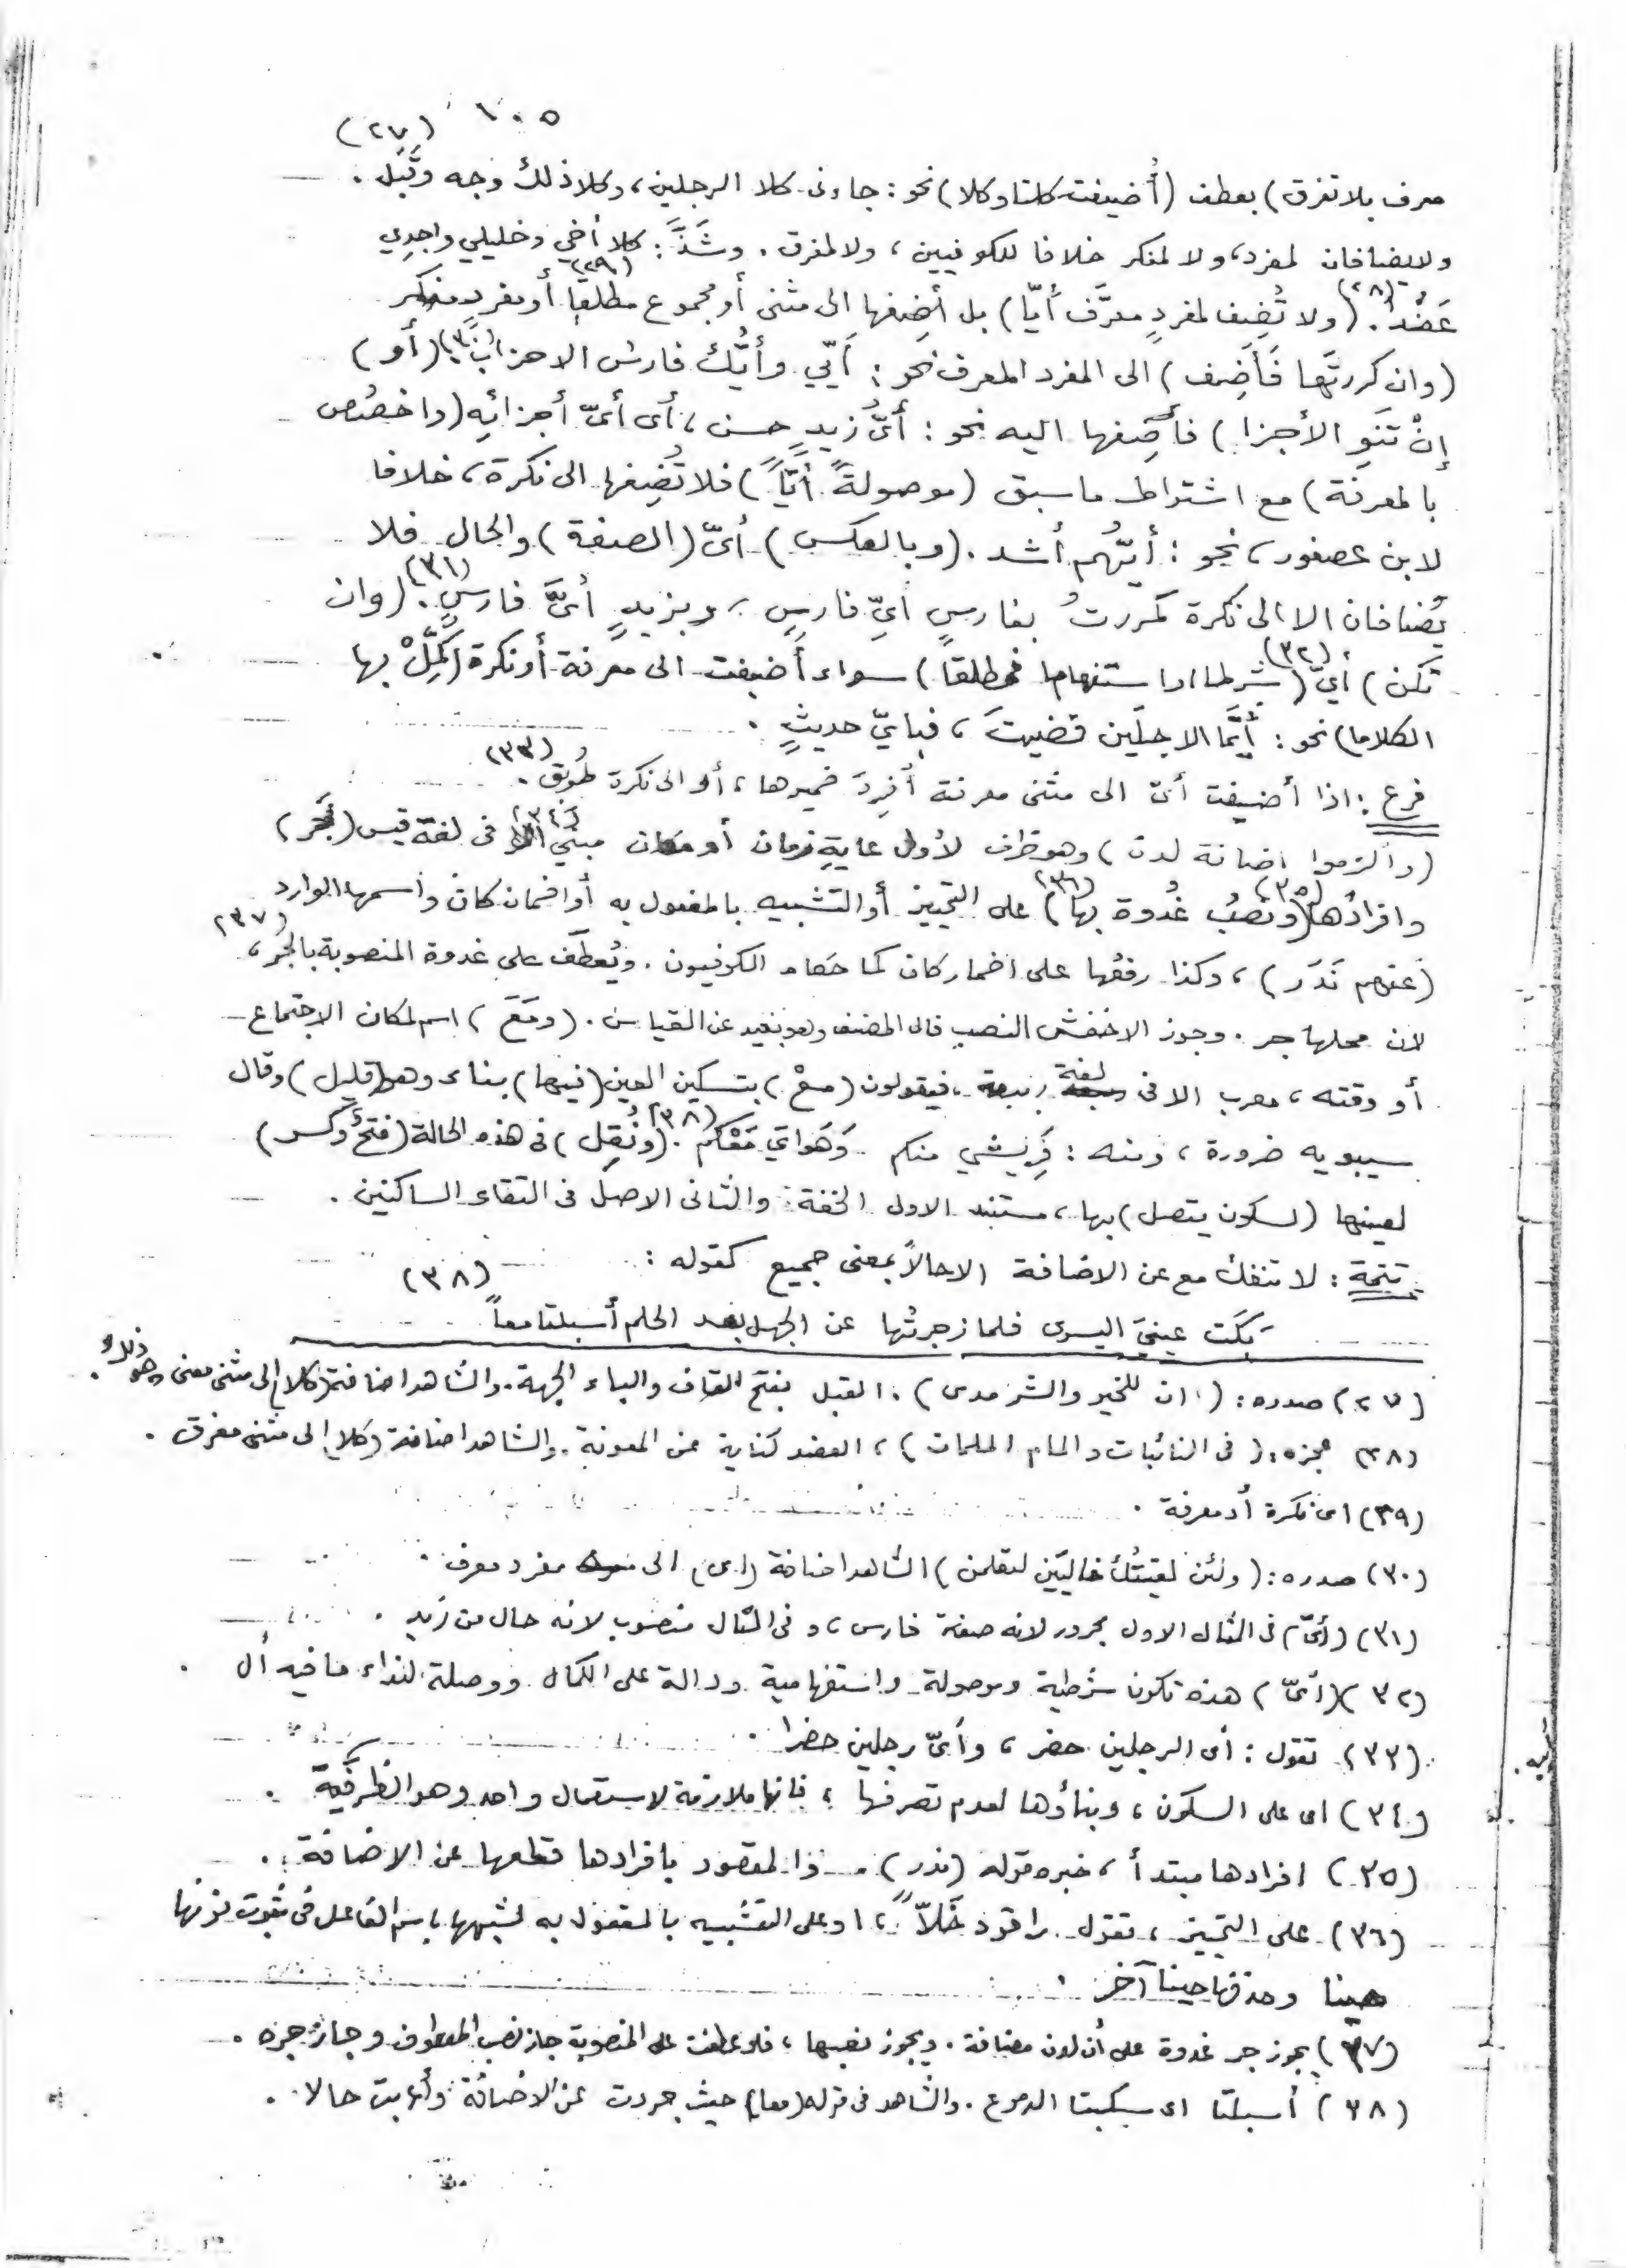 ١٠٥
(٢٧)
معرف بلا تفرق) بعطف (أُضيفت كلتا وكلا) نحو: جاءنى كلا الرجلين، وكلا ذلك وجه وقَبَل .
ولا يضافان لمفرد، ولا لمنكر خلافا للكوفيين، ولا لمفرق . وشَذَّ: كلا أخي وخليلي واجدِي
عَضُداً (٢٨). (ولا تُضِف لمفردٍ معرَّف أَيّا) بل أضِفها الى مثنى أو مجموع مطلقا (٢٩) أو مفردٍ منكر
(وان كررتَها فَأَضِف) الى المفرد المعرف نحو: أَيّي وأَيُّكَ فارس الاحزاب (٣٠). (أو)
إنْ تَنوِ الأجزا) فأضِفها اليه نحو: أَىُّ زيدٍ حسن، أى أىّ أجزائِه (واخصُصن
بالمعرفة) مع اشتراط ما سبق (موصولةً أيّاً) فلا تُضِفها الى نكرة، خلافا
لابن عصفور، نحو: أيّهُم أشد . (وبالعكس) أىّ (الصفة) والحال فلا
يُضافان الا الى نكرة كمررتُ بفارسٍ أيِّ فارسٍ، وبزيدٍ أىَّ فارسٍ (٣١). (وان
تكن) أيّ (٣٢) (شرطا او استفهاما فمطلقا) سواء أضيفت الى معرفة أو نكرة (كَمِّلْ بها
الكلاما) نحو: أيَّما الاجلَين قضيتَ، فبايّ حديثٍ .
فرع: اذا أضيفت أىّ الى مثنى معرفة أُفرِدَ ضميرها، أو الى نكرة طُوبِق (٣٣).
(وألزموا اضافة لدن) وهو ظرف لأول غايةِ زمان أو مكان مبنيٌ (٣٤) الا فى لغة قيس (فَجَر)
وافرادُها (٣٥) (ونَصبُ غُدوة بها) (٣٦) على التمييز أو التشبيه بالمفعول به أو اضمان كان واسمها الوارد
(عنهم نَدَر)، وكذا رفعُها على اضمار كان كما حكاه الكوفيون . ويُعطَف على غدوة المنصوبة بالجر، (٣٧)
لان محلها جر . وجوز الاخفش النصب قال المصنف وهو بعيد عن القياس . (ومَعَ) اسم لمكان الاجتماع
أو وقته، معرب الا فى لغة ربيعة، فيقولون (معْ) بتسكين العين (فيها) بناء وهو (قليل) وقال
سيبويه ضرورة، ومنه: فَرِيشي منكم وَهَوايَ مَعْكُم (٣٨). (ونُقِل) فى هذه الحالة (فتحٌ وكسر)
لعينها (لسكون يتصل) بها، مستند الاول الخفة والثانى الاصل فى التقاء الساكنين .
تتمة: لا تنفك مع عن الاضافة الا حالاً بمعنى جميع كقوله:
(٣٨)
بَكَت عينيَ اليسرى فلما زجرتُها عن الجهل بعد الحلم أسبلتا معاً
(٢٧) صدره: (ان للخير والشر مدى) . القبل بفتح القاف والباء الجهة . والشاهد اضافة (كلا) إلى مثنى معنى وهو ذلك .
(٢٨) عجزه: (فى النائبات والمام الملمات)، العضد كناية عن المعونة . والشاهد اضافة (كلا) الى مثنى مفرق .
(٢٩) اى نكرة أو معرفة .
(٣٠) صدره: (ولئن لقيتُك خاليَين لتعلمن) الشاهد اضافة (اى) الى مفرد معرف .
(٣١) (أىّ) فى المثال الاول مجرور لانه صفة فارس، و فى المثال منصوب لانه حال من زيد .
(٣٢) (أىّ) هذه تكون شرطية وموصولة واستفهامية ودالة على الكمال ووصلة لنداء ما فيه أل .
(٣٣) تقول: أى الرجلين حضر، وأىّ رجلين حضرا .
(٣٤) اى على السكون، وبناؤها لعدم تصرفها، فانها ملازمة لاستعمال واحد وهو الظرفية .
(٣٥) افرادها مبتدأ، خبره قوله (ندر) . ذا لمقصود بافرادها قطعها عن الاضافة .
(٣٦) على التمييز، تقول راقود خلّاً، او على التشبيه بالمفعول به لشبهها باسم الفاعل فى ثبوت نونها
حينا وحذفها حينا آخر .
(٣٧) يجوز جر غدوة على أن لدن مضافة . ويجوز نصبها، فلو عطفت على المنصوبة جاز نصب المعطوف وجاز جره .
(٣٨) أسبلتا اى سكبتا الدموع . والشاهد فى قوله (معا) حيث جردت عن الاضافة وأعربت حالا .